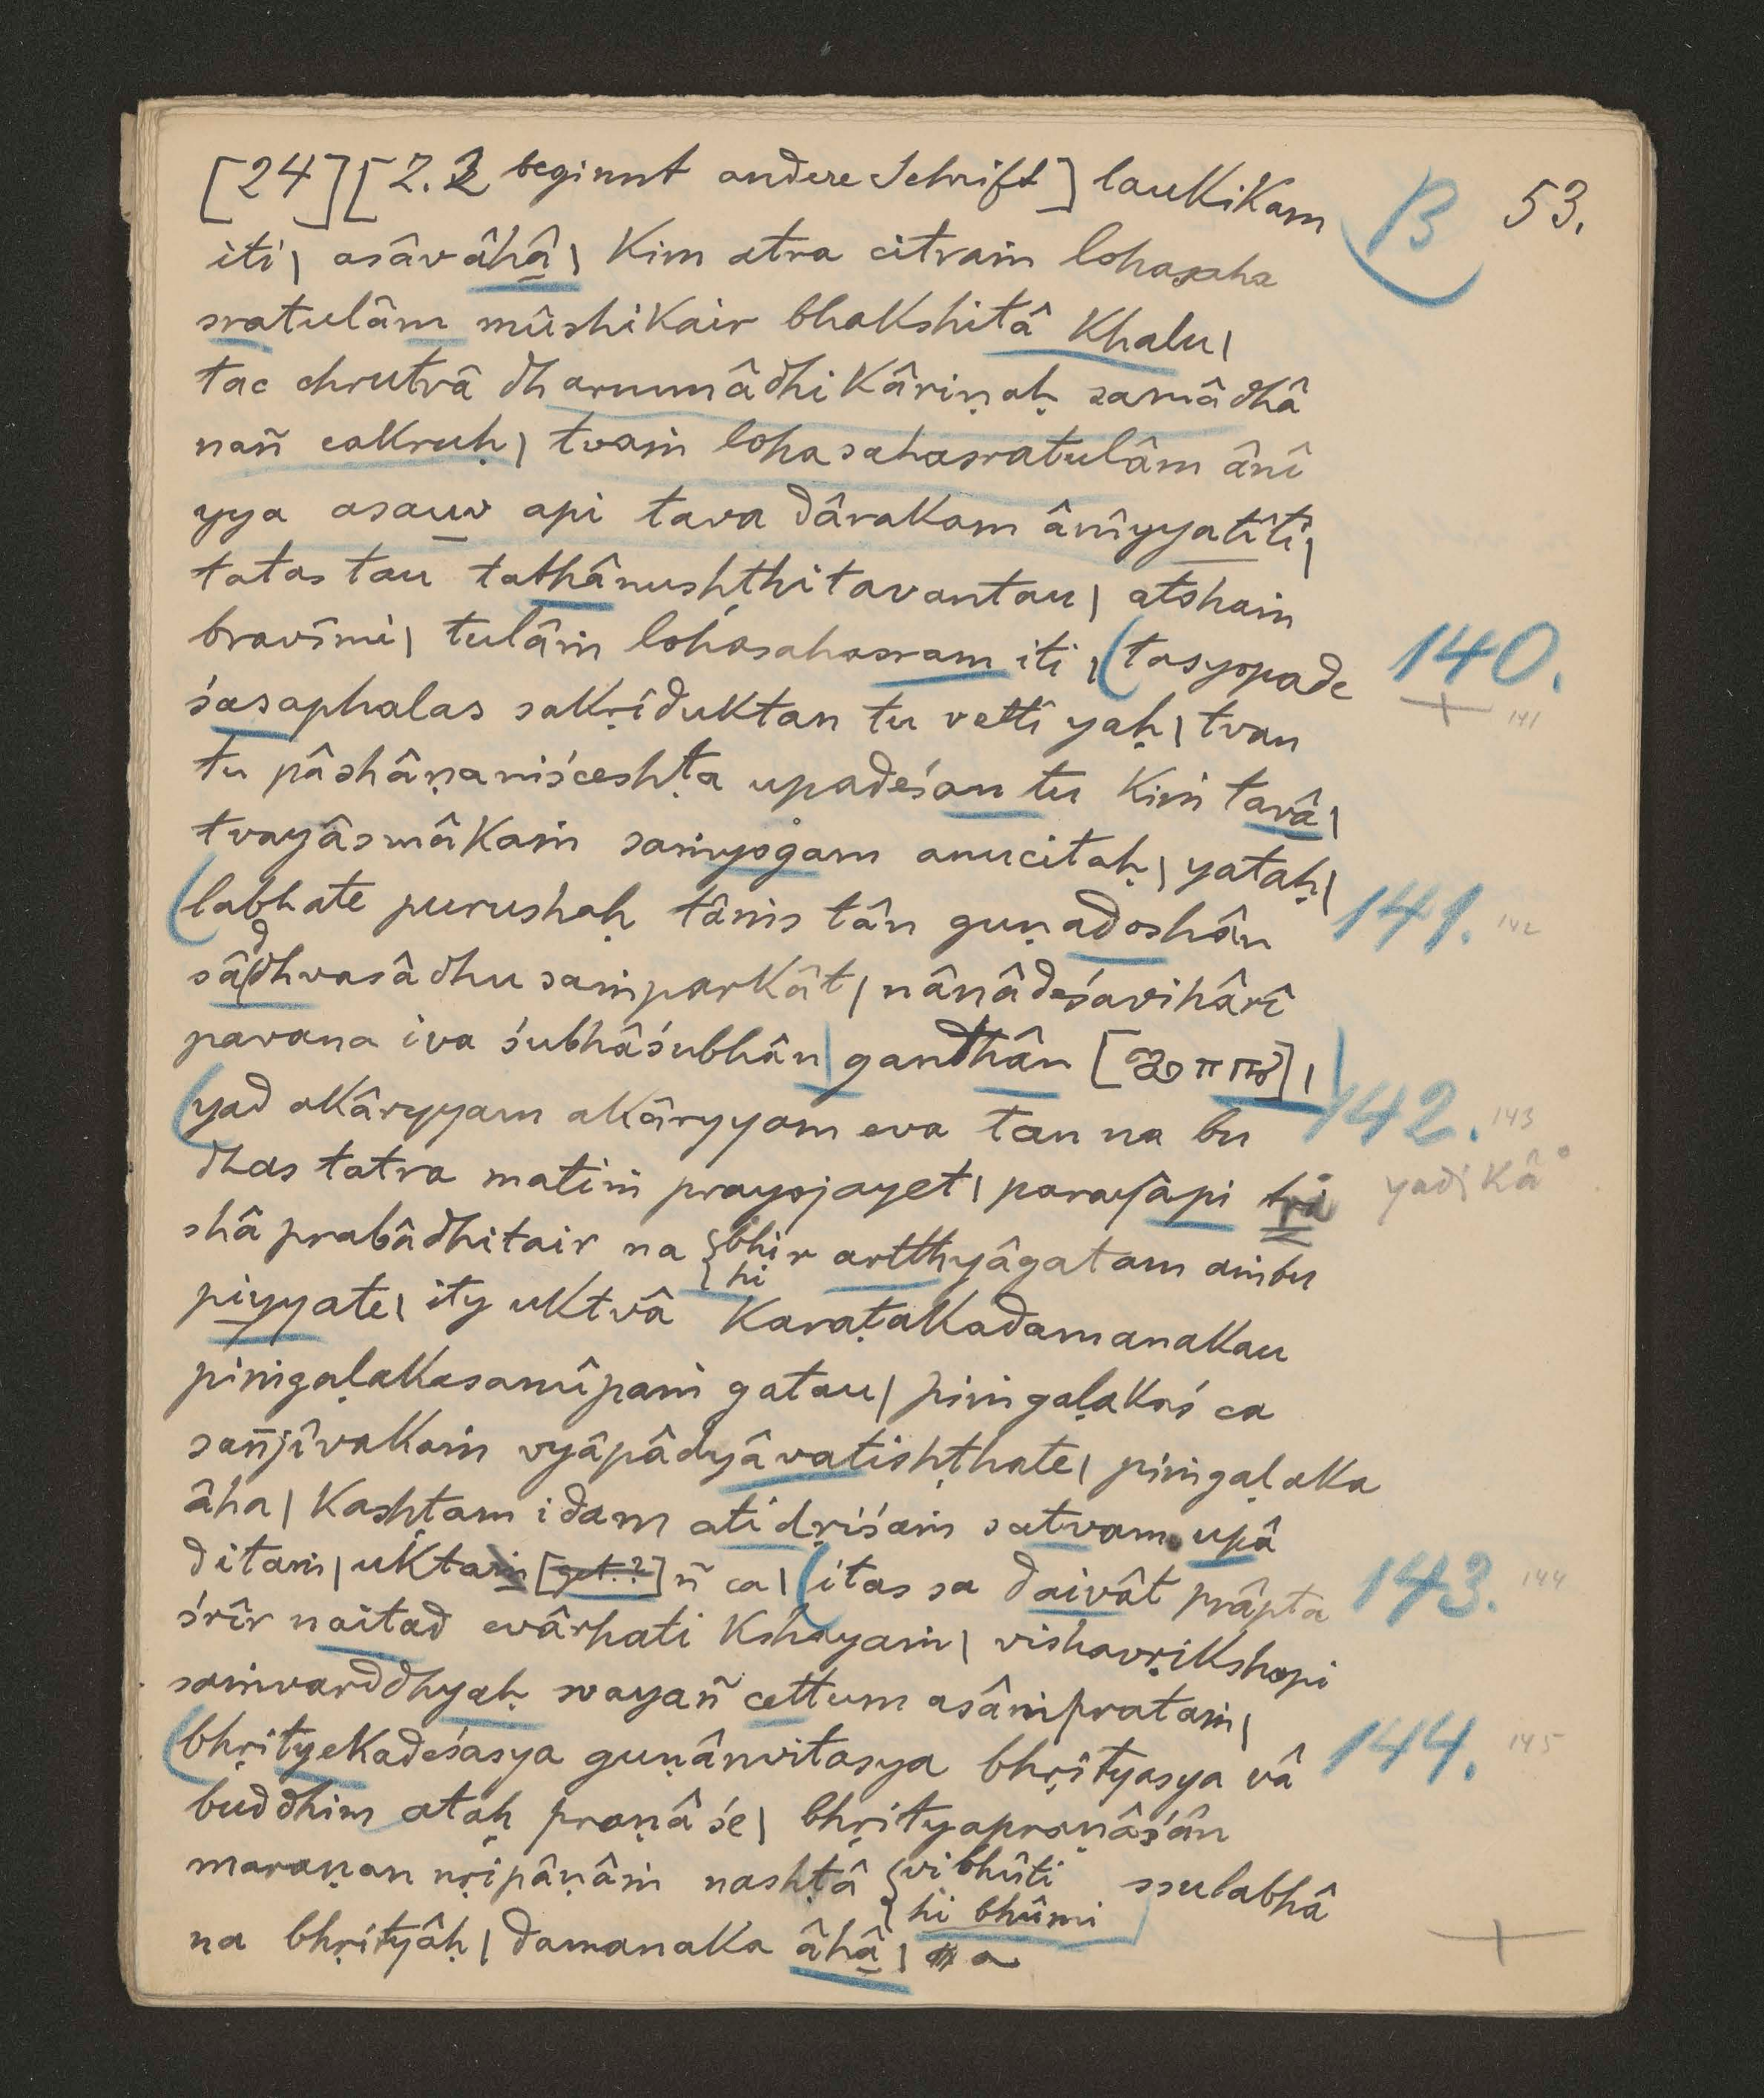 [24] [Z. 2 beginnt andere Schrift] laukikam
B 53.
iti| asâvâhâ| kim atra citraṁ lohasaha
sratulâm mûshikair bhakshitâ khalu|
tac chrutvâ dharmmâdhikâriṇaḥ samâdhâ
nañ cakruḥ| tvaṁ lohasahasratulâm ânî
yya asauv api tava dârakam ânîyyatîti|
tatas tau tathânushṭhitavantau| atohaṁ
bravîmi| tulâṁ lohasahasram iti| (tasyopade
140.
141
śasaphalas sakṛiduktan tu vetti yaḥ| tvan
tu pâshâṇaniśceshṭa upadeśan tu kiṁ tavâ|
tvayâsmâkaṁ saṁyogam anucitaḥ| yataḥ|
(labhate purushaḥ tâṁs tân guṇadoshân
141. 142
sâddhvasâdhusaṁparkât| nânâdeśavihârî
pavana iva śubhâśubhân| gandhân [ ] |
(yad akâryyam akâryyam eva tan na bu
142. 143
dhas tatra matiṁ prayojayet| parayâpi tṛi
yadi kâ°
shâprabâdhitair na {bhir artthyâgatam aṁbu
{hi
piyyate| ity uktvâ karaṭakadamanakau
piṁgaḷakasamîpaṁ gatau| piṁgaḷakaś ca
sañjîvakaṁ vyâpâdyâvatishṭhate| piṁgaḷaka
âha| kashṭam idam atidṛiśaṁ satvam upâ
ditaṁ| uktaṁ [get.?] ñ ca| (itas sa daivât prâpta
143. 144
śrîr naitad evârhati kshayaṁ| vishavṛikshopi
saṁvarddhyaḥ svayañ cettum asâṁprataṁ|
(bhṛityekadeśasya guṇânvitasya bhṛityasya vâ
144. 145
buddhim ataḥ praṇâśe| bhṛityapraṇâśân
maraṇan nṛipâṇâṁ nashṭâ {vibhûti ssulabhâ
{hi bhûmi
na bhṛityâḥ| damanaka âhâ| a